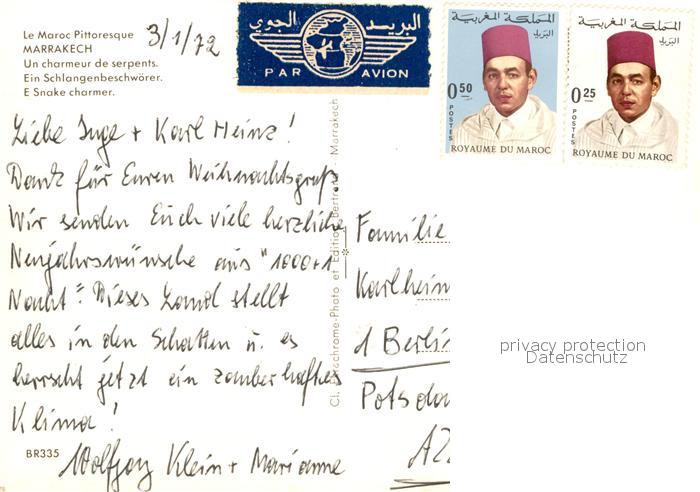 Le Maroc Pittoresque
MARRAKECH
Un charmeur de serpents.
Ein Schlangenbeschwörer.
E Snake charmer.
3/1/72
البريد الجوي
PAR AVION
المملكة المغربية
البريد
0.50
POSTES
ROYAUME DU MAROC
المملكة المغربية
البريد
0.25
POSTES
ROYAUME DU MAROC
Liebe Inge + Karl Heinz!
Dank für Euren Weihnachtsgruß
Wir senden Euch viele herzliche
Neujahrswünsche aus "1000+1
Nacht". Dieses Land stellt
alles in den Schatten u. es
herrscht jetzt ein zauberhaftes
Klima!
Wolfgang Klein + Marianne
BR335
Photo et Edition Bertrand, Marrakech
Familie
Karlhein
1 Berlin
Potsda
privacy protection
Datenschutz